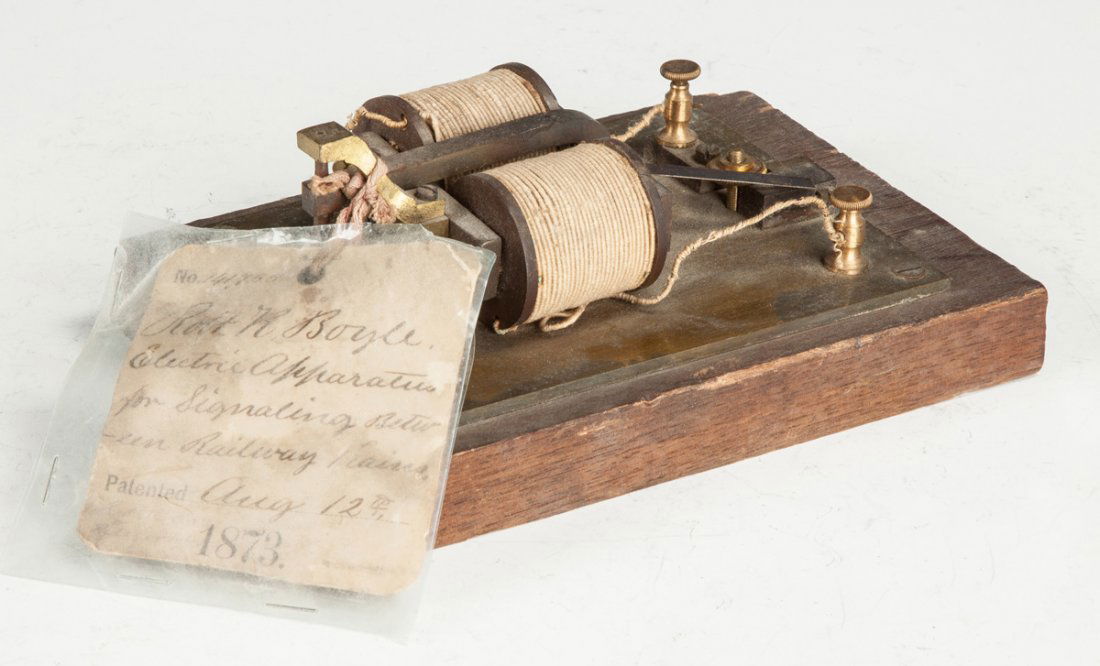 No.
Robt H. Boyle.
Electric Apparatus
for Signaling Betw
-een Railway Trains.
Patented Aug 12th,
1873.